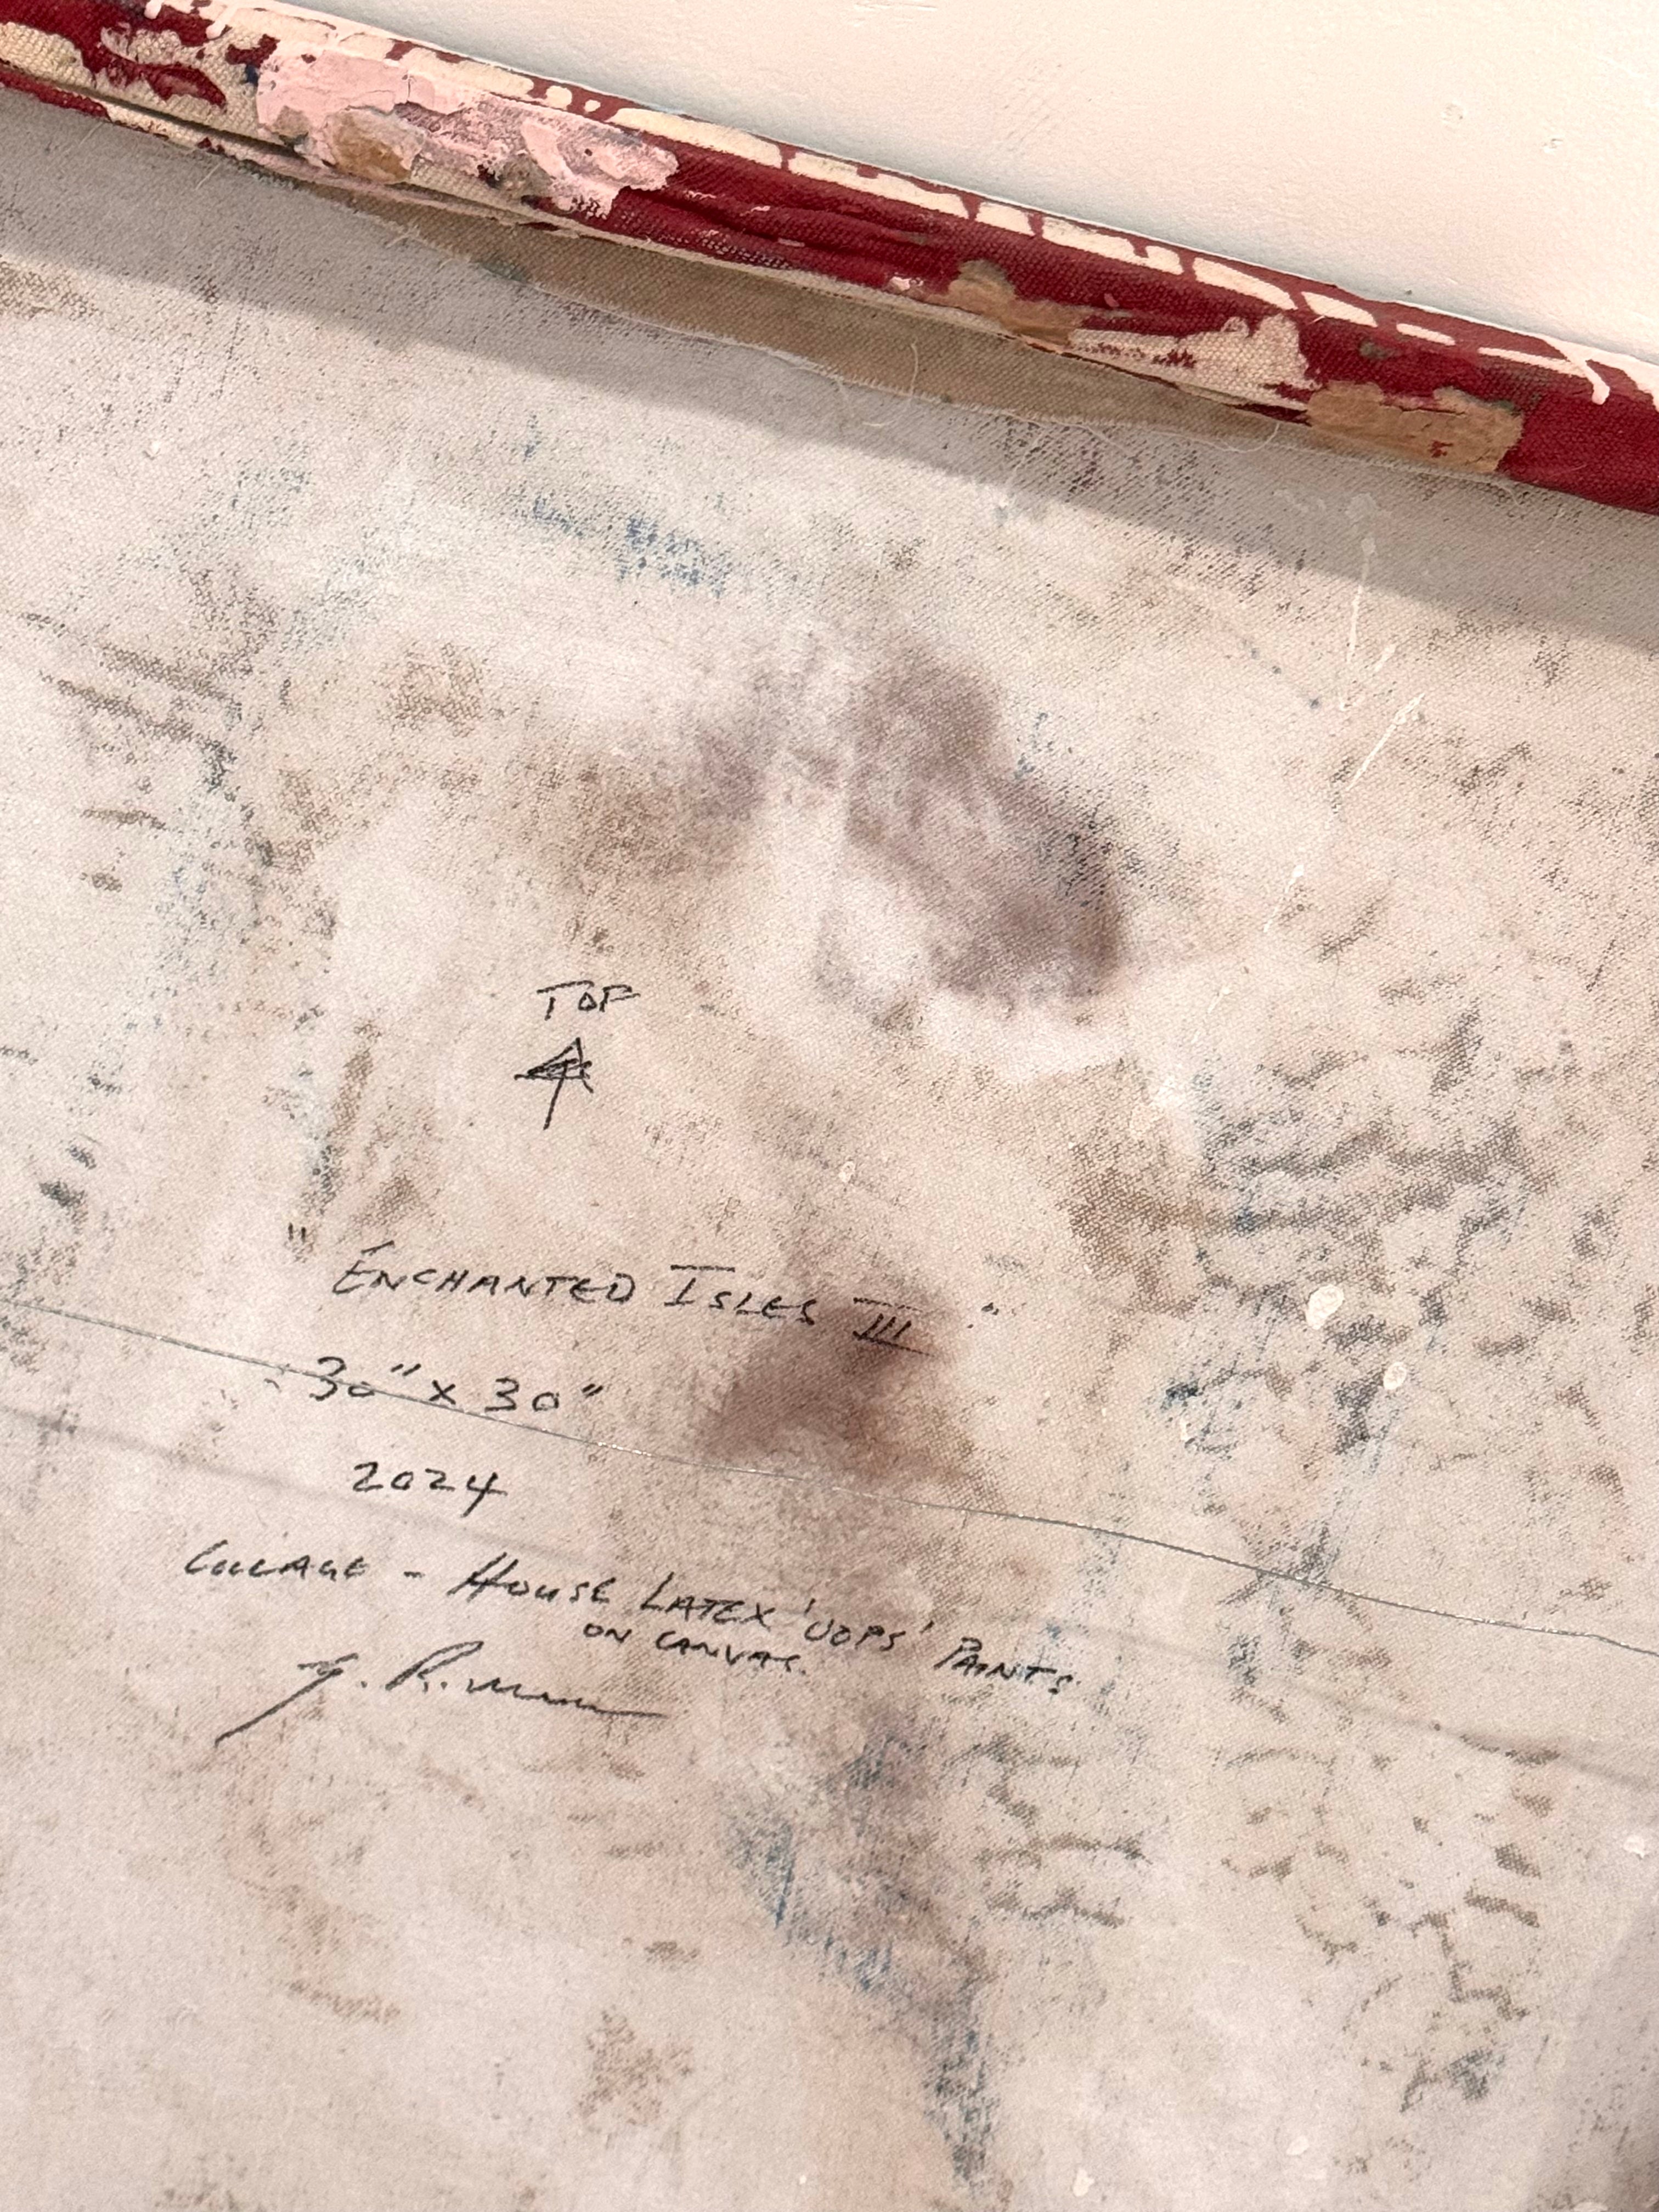 TOP
"ENCHANTED ISLES III"
30" x 30"
2024
COLLAGE - HOUSE LATEX 'OOPS' PAINTS
ON CANVAS.